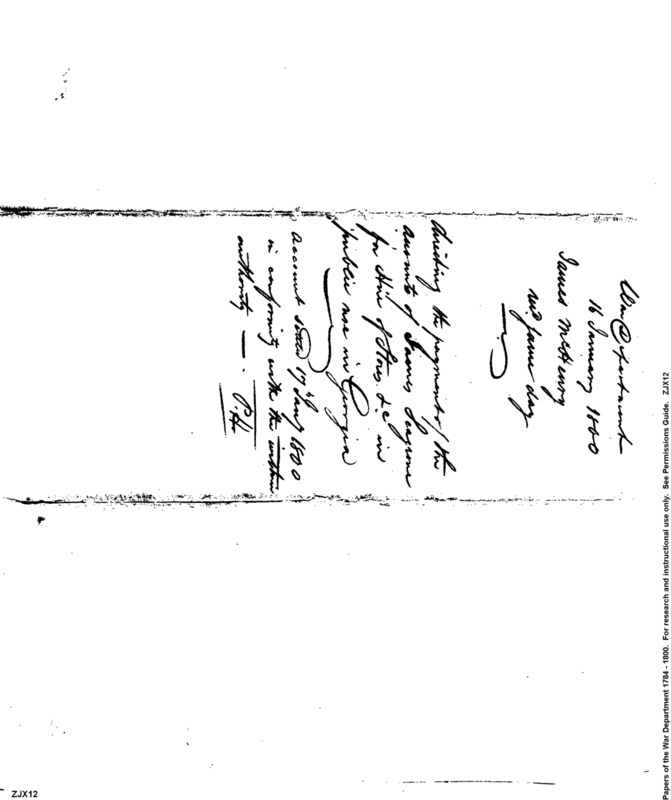 War Department
16 January 1800
James McHenry
recd. same day
directing the payment of the
accounts of James Seagrove
for Hire of Stores &c in
public use in Georgia
account 17th Jany 1800
in conformity with the within
authority —
PH
Papers of the War Department 1784 - 1800. For research and instructional use only. See Permissions Guide. ZJX12
ZJX12